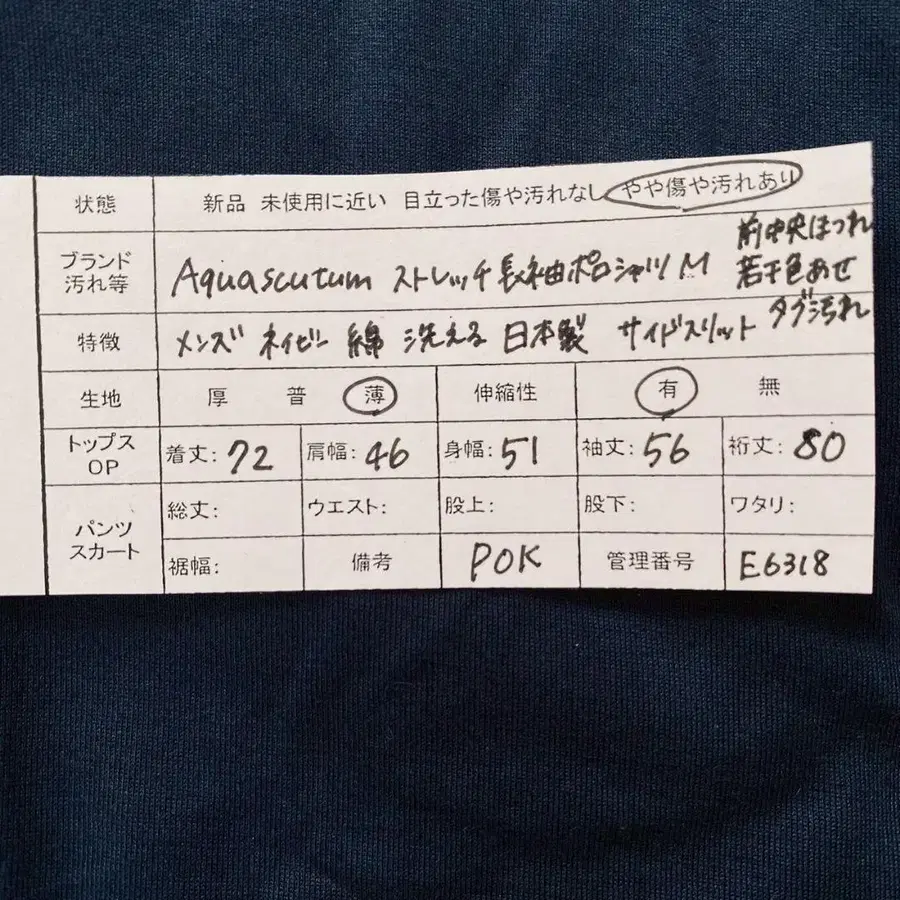 状態 新品 未使用に近い 目立った傷や汚れなし やや傷や汚れあり
ブランド汚れ等 Aquascutum ストレッチ長袖ポロシャツ M
前中央ほつれ
若干色あせ
タグ汚れ
特徴 メンズ ネイビー 綿 洗える 日本製 サイドスリット
生地 厚 普 薄 伸縮性 有 無
トップス OP 着丈: 72 肩幅: 46 身幅: 51 袖丈: 56 裄丈: 80
パンツ スカート 総丈: ウエスト: 股上: 股下: ワタリ:
裾幅: 備考 POK 管理番号 E6318